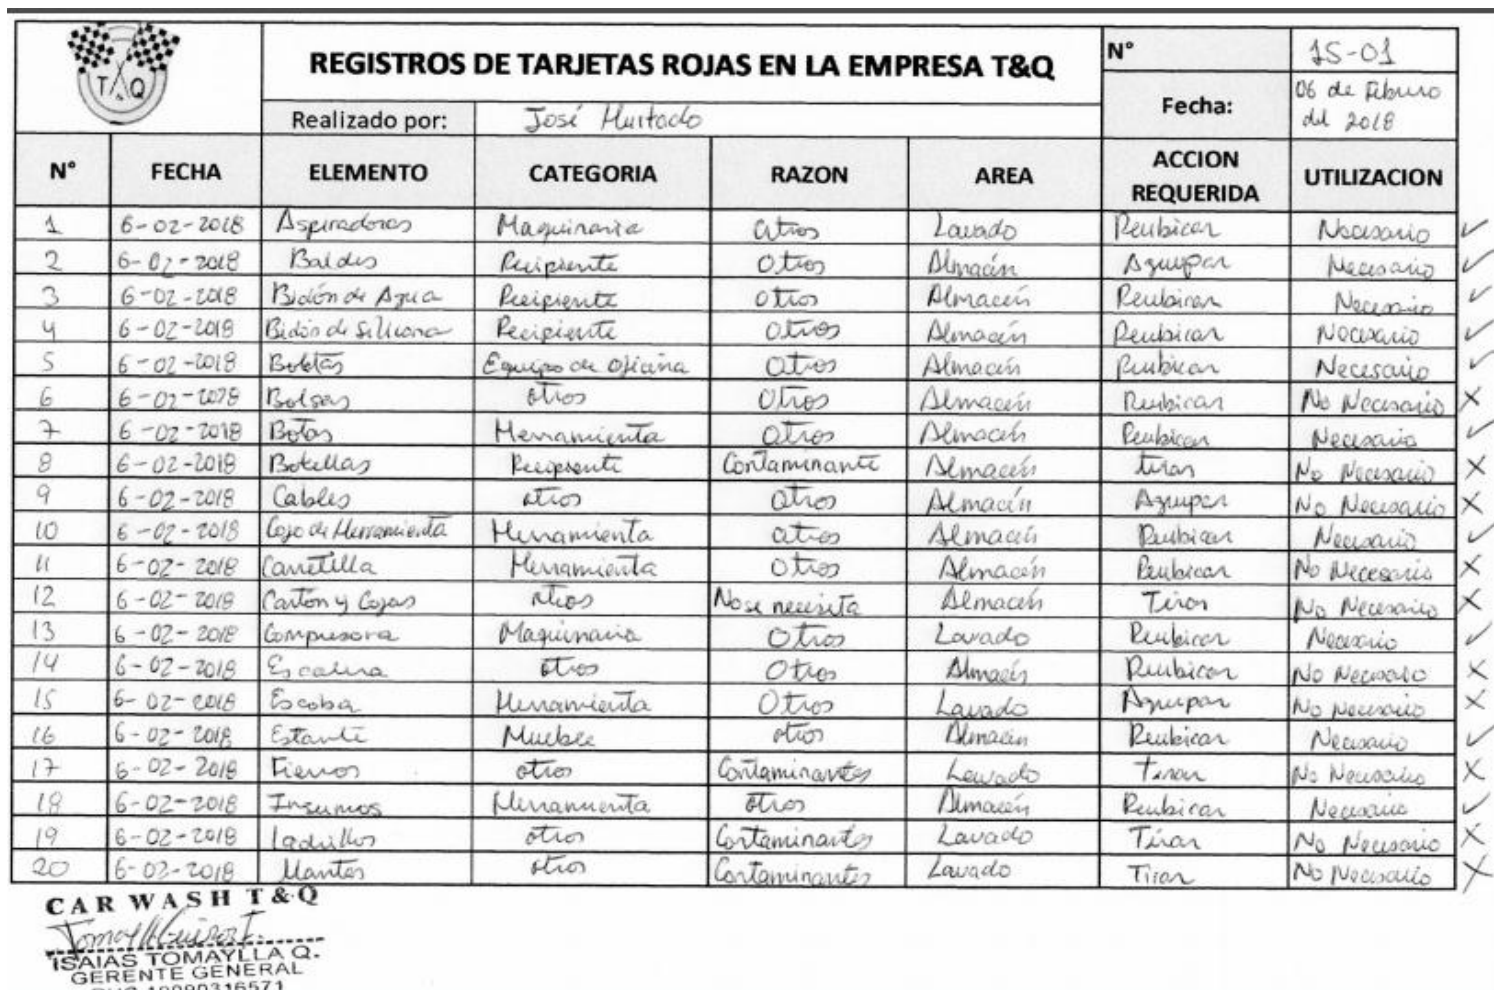 T&Q
REGISTROS DE TARJETAS ROJAS EN LA EMPRESA T&Q
N° 1S-01
Realizado por: José Hurtado
Fecha: 06 de Febrero del 2018
N° FECHA ELEMENTO CATEGORIA RAZON AREA ACCION REQUERIDA UTILIZACION
1 6-02-2018 Aspiradoras Maquinaria otros Lavado Reubicar Necesario ✓
2 6-02-2018 Baldes Recipiente Otros Almacén Agrupar Necesario ✓
3 6-02-2018 Bidón de Agua Recipiente otros Almacén Reubicar Necesario ✓
4 6-02-2018 Bidón de Silicona Recipiente otros Almacén Reubicar Necesario ✓
5 6-02-2018 Boletas Equipo de oficina Otros Almacén Reubicar Necesario ✓
6 6-02-2018 Bolsas otros Otros Almacén Reubicar No Necesario X
7 6-02-2018 Botas Herramienta Otros Almacén Reubicar Necesario ✓
8 6-02-2018 Botellas Recipiente Contaminante Almacén tirar No Necesario X
9 6-02-2018 Cables otros Otros Almacén Agrupar No Necesario X
10 6-02-2018 Caja de Herramienta Herramienta otros Almacén Reubicar Necesario ✓
11 6-02-2018 Carretilla Herramienta Otros Almacén Reubicar No Necesario X
12 6-02-2018 Carton y Cajas otros No se necesita Almacén Tirar No Necesario X
13 6-02-2018 Compresora Maquinaria Otros Lavado Reubicar Necesario ✓
14 6-02-2018 Escalera otros Otros Almacén Reubicar No Necesario X
15 6-02-2018 Escoba Herramienta Otros Lavado Agrupar No Necesario X
16 6-02-2018 Estante Mueble otros Almacén Reubicar Necesario ✓
17 6-02-2018 Fierros otros Contaminantes Lavado Tirar No Necesario X
18 6-02-2018 Insumos Herramienta otros Almacén Reubicar Necesario ✓
19 6-02-2018 ladrillos otros Contaminantes Lavado Tirar No Necesario X
20 6-02-2018 Llantas otros Contaminantes Lavado Tirar No Necesario X
CAR WASH T&Q
ISAIAS TOMAYLLA Q.
GERENTE GENERAL